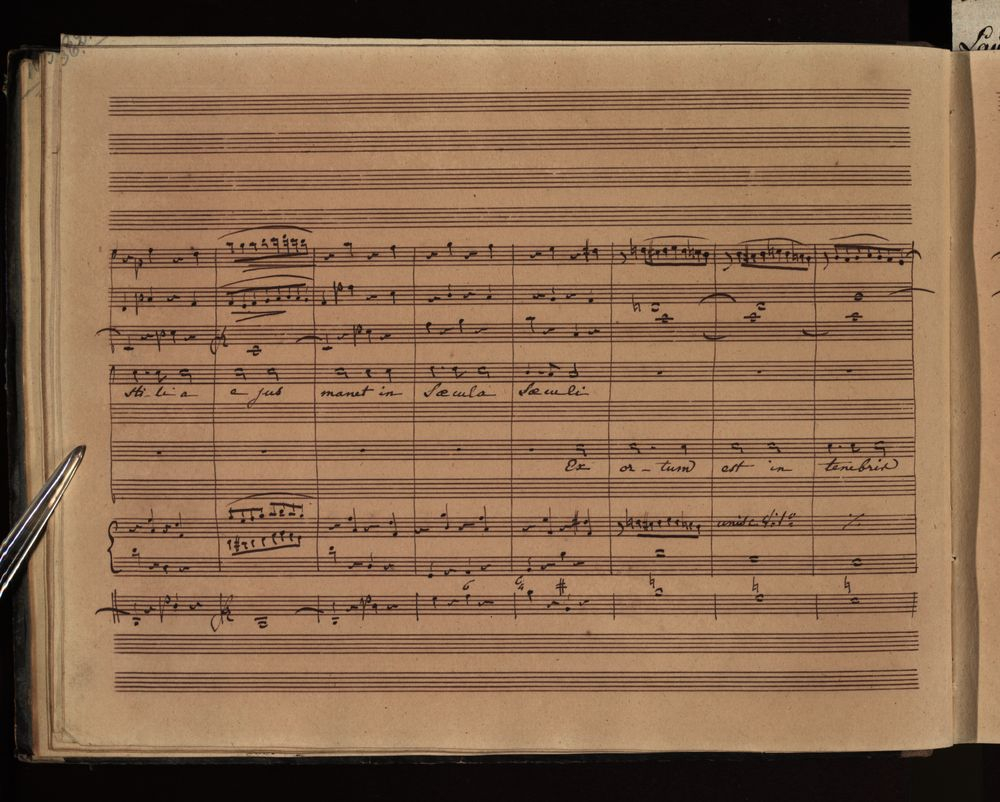 sti-ti-a e jus manet in Sæcula Sæculi
Ex or-tum est in tenebris
6 6